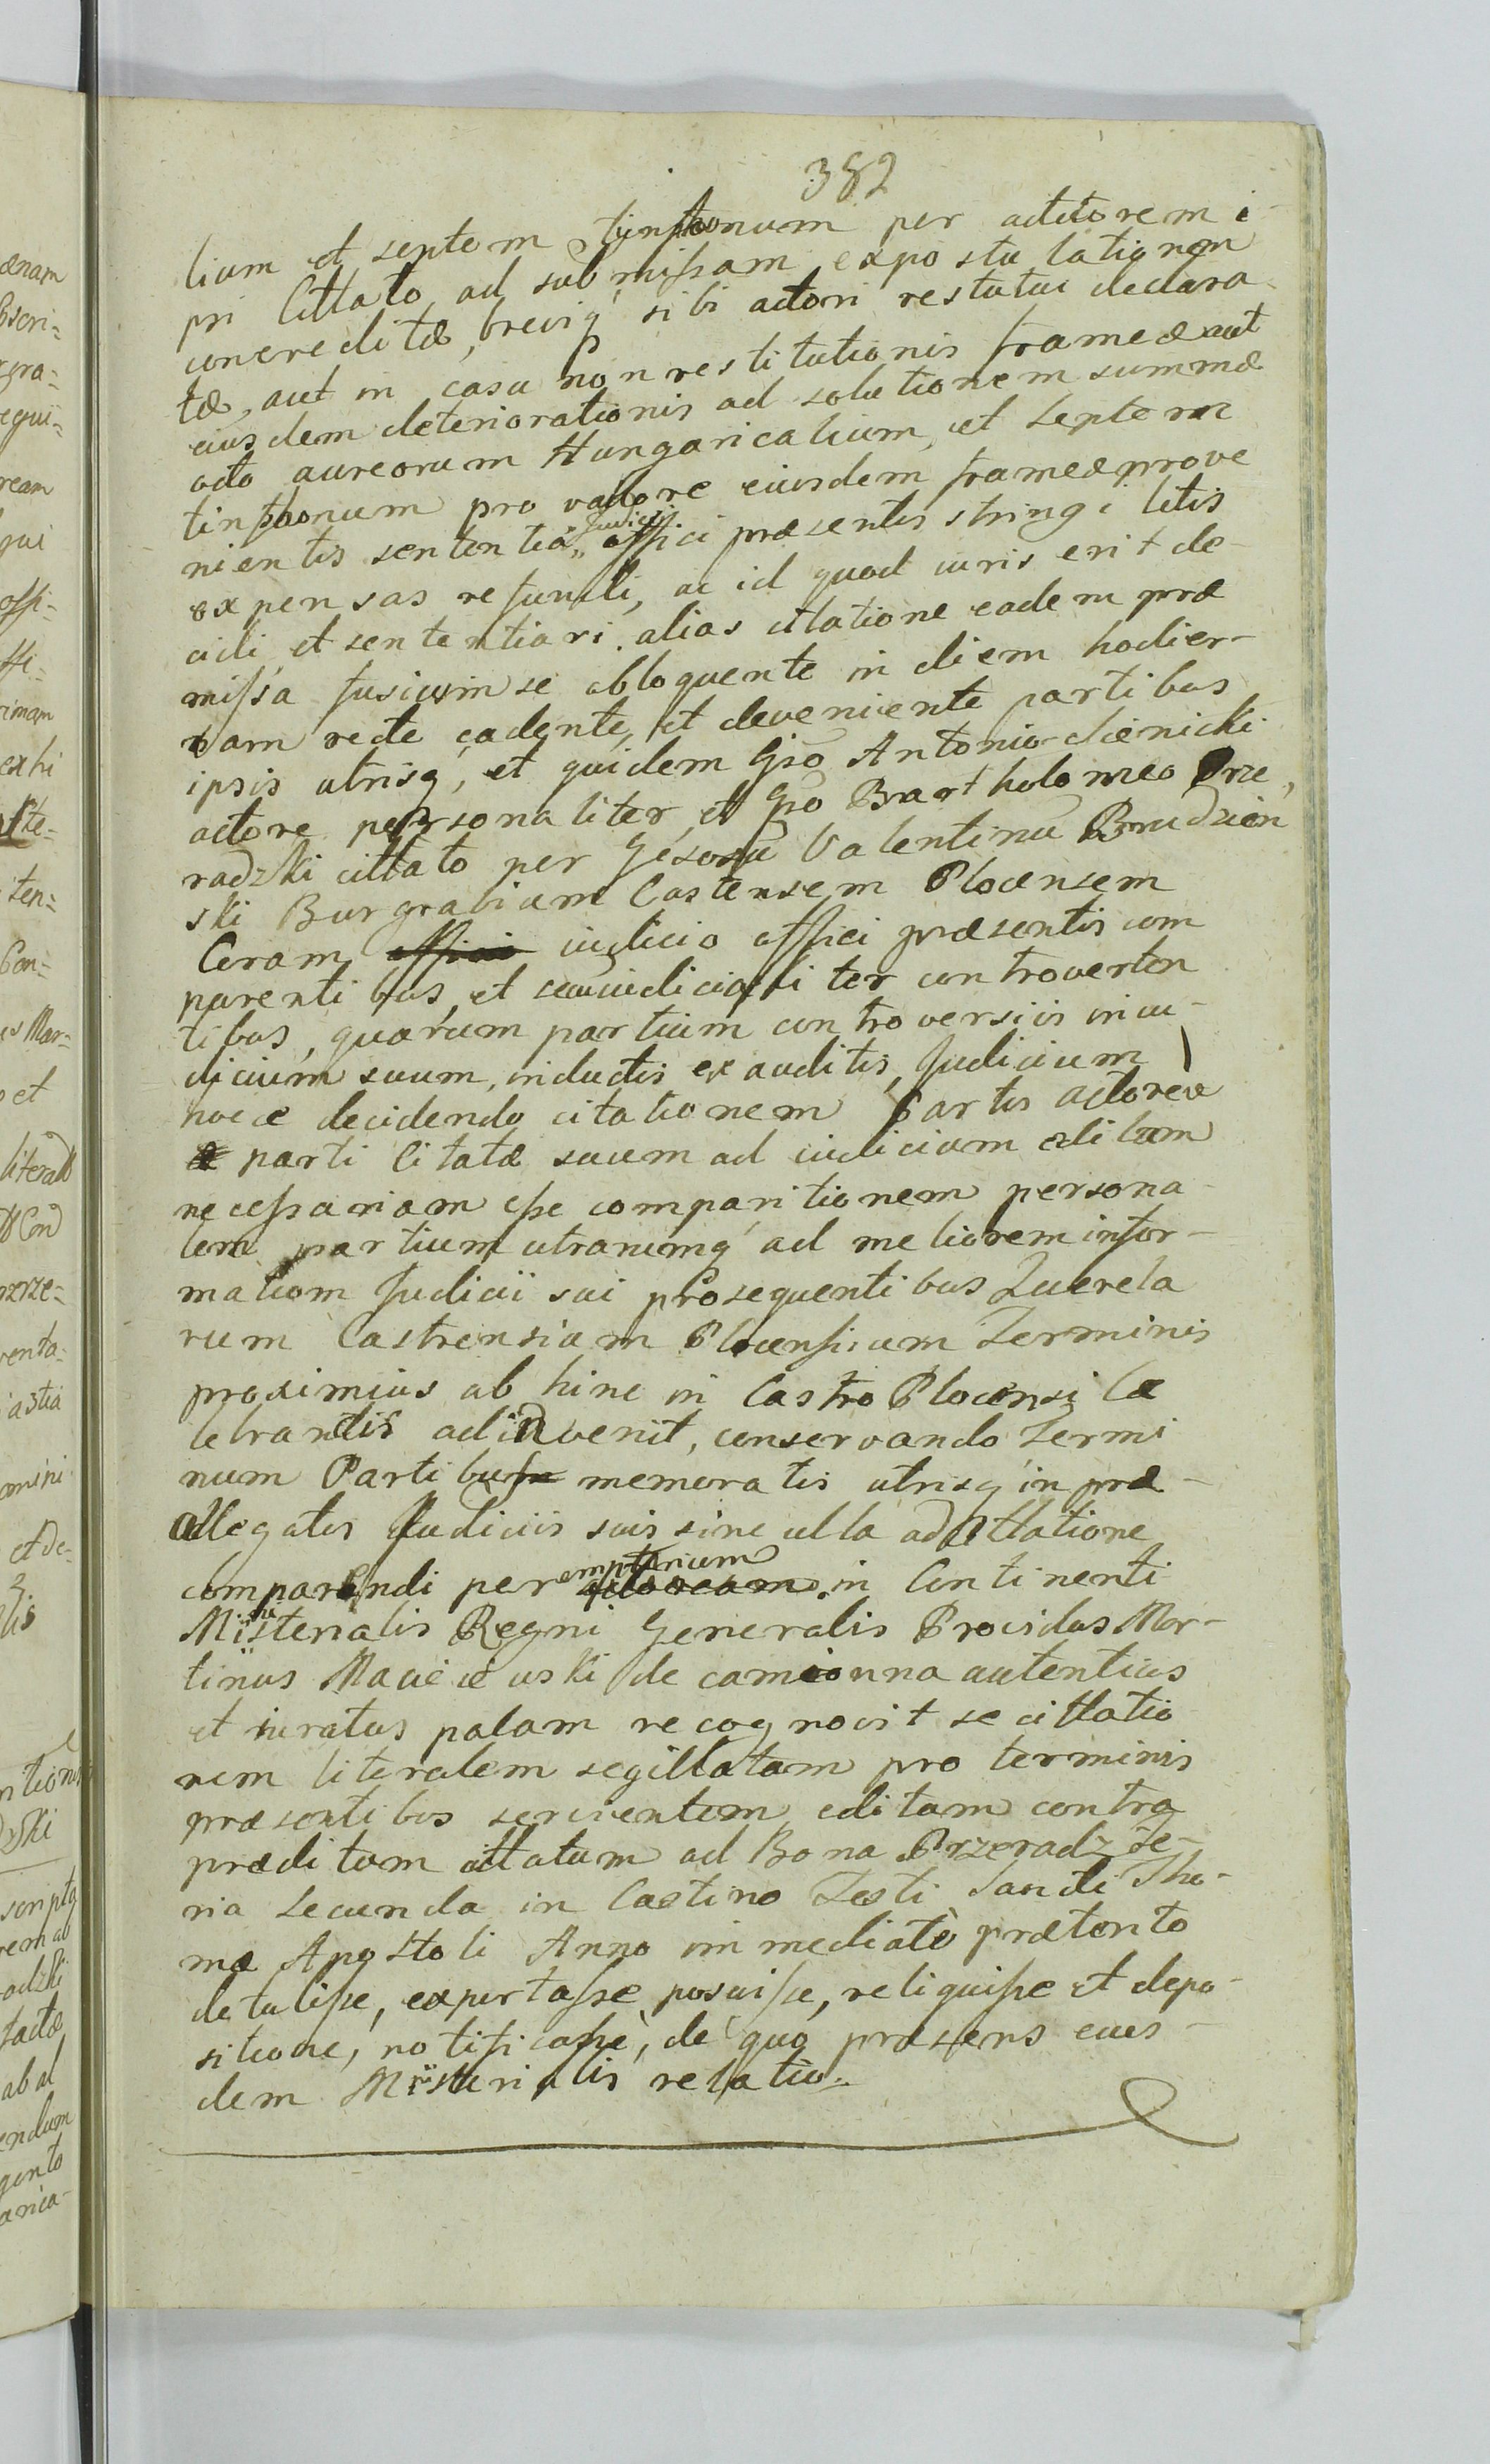 382
lium et septem tinphonum per actorem i-
psi Cittato ad submissam expostulationem
concreditæ, breviq́ sibi actori restitui declara-
tæ, aut in casu non restitutionis frameæ aut
eiusdem deteriorationis ad solutionem summæ
octo aureorum Hungaricalium, et septem
tinphonum pro valore eiusdem frameæ prove
nientis sententia Judicij offici præsentis stringi litis
expensas refundi, ac id quod iuris erit de-
cidi, et sententiari. alias citatione eadem præ
missa fusius in se obloquente in diem hodier-
nam recte cadente, et deveniente partibus
ipsis utrisq́, et quidem Gso Antonio
actore personaliter, et Gso Bartholomeo Prze,
radzki cittato per Gesosū Valentinū Brudzien
ski Burgrabium Castensem Plocensem
Coram offici iudicio offici præsentis com
parentibus, et iudicialiter controverten
tibus, quarum partium controversiis in iu-
dicium suum, inductis exauditis, Judicium
hocce decidendo citationem Partis Actoreæ
parti Citatæ suum ad iudicium editam
necessariam esse comparitionem persona-
lem partium utrarumq́ ad meliorem infor-
mationem Judicii sui prosequentibus Querela
rum Castrensium Plocensium Terminis
proximius ab hinc in Castro Plocensi Cæ
lebrandis adinvenit, conservando Termi
num Partibus memoratis utrisq́ in præ-
allegatis Judiciis suis sine ulla adcittatione
comparendi peremptorium actoream in Continenti
Ministerialis Regni Generalis Providus Mar-
tinus Macieiewski de camionna autenticus
et iuratus palam recognovit se cittatio
nem literalem segillatam pro terminis
præsentibus servientem editam contra
præditum cittatum ad Bona Przeradz fe-
ria Secunda in Castino Festi Sancti Tho-
mæ Apostoli Anno immediatè prætento
detulisse, exportasse posuisse, reliquisse et depo-
sitione, notificasse, de quo præsens eius-
dem Ministerialis relatio.